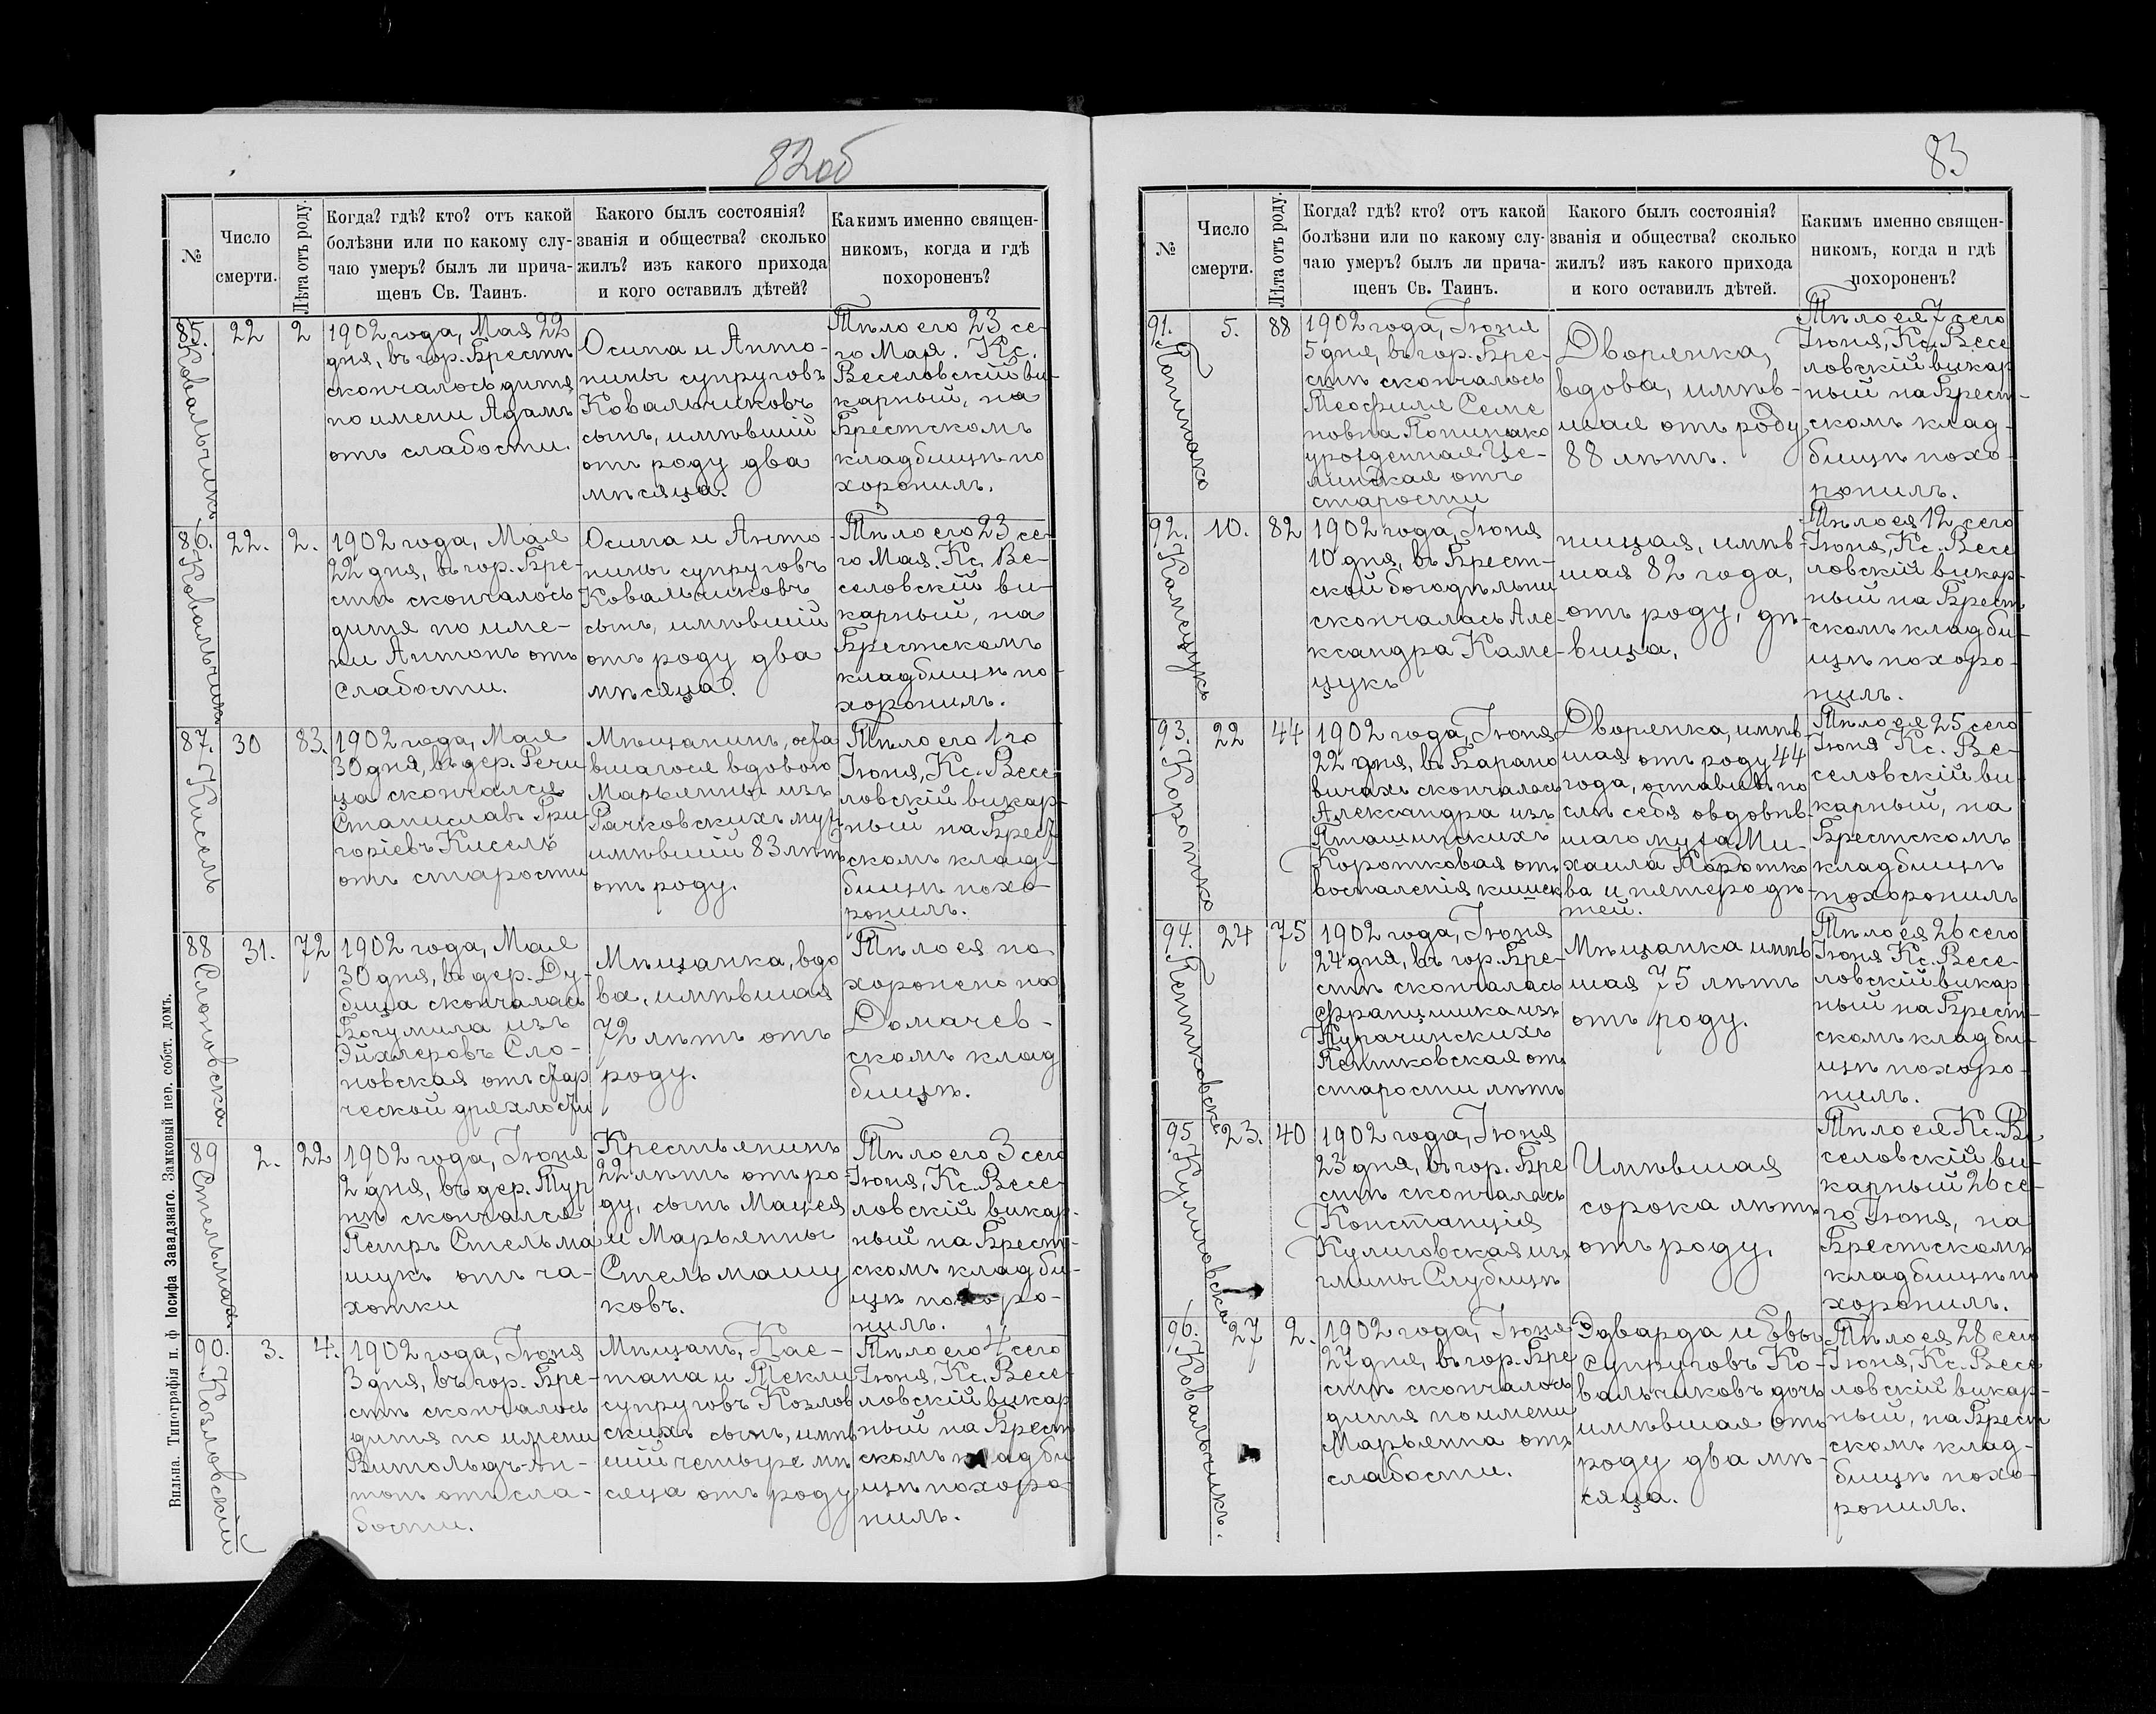 82 об
№
Число
смерти.
Лѣта отъ роду.
Когда? гдѣ? кто? отъ какой
болѣзни или по какому слу-
чаю умеръ? былъ ли прича-
щенъ Св. Таинъ.
Какого былъ состоянія?
званія и общества? сколько
жилъ? изъ какого прихода
и кого оставилъ дѣтей?
Какимъ именно священ-
никомъ, когда и гдѣ
похороненъ?
85.
Ковальчикъ
22
2
1902 года, Мая 22
дня, въ гор. Брестѣ
скончалось дитя
по имени Адамъ
отъ слабости.
Осипа и Анто-
нины супруговъ
Ковальчиковъ
сынъ, имѣвшій
отъ роду два
мѣсяца.
Тѣло его 23 се-
го Мая. Кс.
Веселовскій ви-
карный, на
Брестскомъ
кладбищѣ по
хоронилъ.
86.
Ковальчикъ
22.
2.
1902 года, Мая
22 дня, въ гор. Бре-
стѣ скончалось
дитя по име-
ни Антонъ отъ
слабости.
Осипа и Анто-
нины супруговъ
Ковальчиковъ
сынъ, имѣвшій
отъ роду два
мѣсяца.
Тѣло его 23 се-
го Мая. Кс. Ве-
селовскій ви-
карный, на
Брестскомъ
кладбищѣ по-
хоронилъ.
87.
Кисель
30
83.
1902 года, Мая
30 дня, въ дер. Речи
ца скончался
Станиславъ Гри
горіевъ Кисель
отъ старости
Мѣщанинъ, оста
вшагося вдовою
Марьянны изъ
Рачковскихъ мужъ
имѣвшій 83 лѣтъ
отъ роду.
Тѣло его 1 го
Іюня, Кс. Весе
ловскій викар-
ный на Брест
скомъ клад-
бищѣ похо-
ронилъ.
88
Слоновска
31.
72
1902 года, Мая
30 дня, въ дер. Ду-
бица скончалась
Богумила изъ
Эйхлеровъ Сло-
новская отъ стар
ческой дряхлости
Мѣщанка, вдо
ва, имѣвшая
72 лѣтъ отъ
роду.
Тѣло ея по
хоронено на
Домачев-
скомъ клад
бищѣ.
89
Стельмах
2.
22
1902 года, Іюня
2 дня, въ дер. Тур
нѣ скончался
Петръ Стельма
шукъ отъ ча-
хотки
Крестьянинъ
22 лѣтъ отъ ро
ду, сынъ Мацея
и Марьянны
Стельмашу
ковъ.
Тѣло его 3 сего
Іюня, Кс. Весе-
ловскій викар-
ный на Брест-
скомъ кладби-
щѣ похоро-
нилъ.
90.
Козловскій
3.
4.
1902 года, Іюня
3 дня, въ гор. Бре-
стѣ скончалось
дитя по имени
Витольдъ-Ан-
тонъ отъ сла-
бости.
Мѣщанъ, Кае-
тана и Текли
супруговъ Козлов
скихъ сынъ, имѣв
шій четыре мѣ
сяца отъ роду
Тѣло его 4 сего
Іюня, Кс. Весе-
ловскій викар
ный на Брест
скомъ кладби
щѣ похоро
нилъ.
Вильна. Типографія п. ф Іосифа Завадзкаго. Замковый пер. собст. домъ.
83
№
Число
смерти.
Лѣта отъ роду.
Когда? гдѣ? кто? отъ какой
болѣзни или по какому слу-
чаю умеръ? былъ ли прича-
щенъ Св. Таинъ.
Какого былъ состоянія?
званія и общества? сколько
жилъ? изъ какого прихода
и кого оставилъ дѣтей.
Какимъ именно священ-
никомъ, когда и гдѣ
похороненъ?
91.
Попинако
5.
88
1902 года, Іюня
5 дня, въ гор. Бре-
стѣ скончалось
Теофиля Семе
новна Попинако
урожденная Це-
линская отъ
старости
Дворянка,
вдова, имѣв-
шая отъ роду
88 лѣтъ.
Тѣло ея 7 сего
Іюня, Кс. Весе
ловскій викар
ный на Брест-
скомъ клад-
бищѣ похо-
ронилъ.
92.
Камецукъ
10.
82
1902 года, Іюня
10 дня, въ Брест-
ской богадѣльни
скончалась Але-
ксандра Каме-
цукъ
нищая, имѣв-
шая 82 года,
отъ роду, дѣ-
вица,
Тѣло ея 12 сего
Іюня, Кс. Весе
ловскій викар-
ный на Брест
скомъ кладби-
щѣ похоро-
нилъ.
93.
Коротко
22
44
1902 года, Іюня
22 дня, въ Барано
вичахъ скончалась
Александра изъ
Пташинскихъ
Коротковая отъ
воспаленія кишек
Дворянка, имѣв-
шая отъ роду 44
года, оставивъ по
слѣ себя овдовѣв-
шаго мужа Ми-
хаила Коротко
ва и пятеро дѣ-
тей.
Тѣло ея 25 сего
Іюня Кс. Ве-
селовскій ви-
карный, на
Брестскомъ
кладбищѣ
похоронилъ
94.
Петковская
24
75
1902 года, Іюня
24 дня, въ гор. Бре-
стѣ скончалась
Францишка изъ
Курачинскихъ
Петковская отъ
старости лѣтъ
Мѣщанка имѣв
шая 75 лѣтъ
отъ роду.
Тѣло ея 26 сего
Іюня Кс. Весе-
ловскій викар
ный на Брест-
скомъ кладби-
щѣ похоро-
нилъ.
95.
Кулиговска
23.
40
1902 года, Іюня
23 дня, въ гор. Бре
стѣ скончалась
Констанція
Кулиговская изъ
гмины Слубицѣ
Имѣвшая
сорока лѣтъ
отъ роду.
Тѣло ея Кс. Ве
селовскій ви-
карный 26 се-
го Іюня, на
Брестскомъ
кладбищѣ по
хоронилъ.
96.
Ковальчикъ.
27
2.
1902 года, Іюня
27 дня, въ гор. Бре
стѣ скончалось
дитя по имени
Марьянна отъ
слабости.
Эдварда и Евы
супруговъ Ко-
вальчиковъ дочь
имѣвшая отъ
роду два мѣ-
сяца.
Тѣло ея 28 сего
Іюня, Кс. Весе
ловскій викар-
ный, на Брест
скомъ клад-
бищѣ похо-
ронилъ.